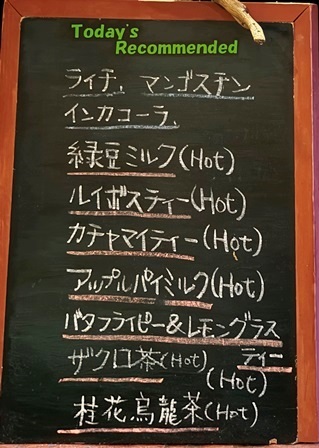 Today's
Recommended
ライチ、マンゴスチン
インカコーラ、
緑豆ミルク(Hot)
ルイボスティー(Hot)
カチャマイティー(Hot)
アップルパイミルク(Hot)
バタフライピー&レモングラス
ティー
(Hot)
ザクロ茶(Hot)
桂花烏龍茶(Hot)